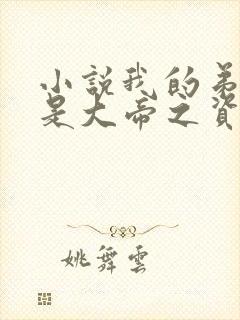 小説我的弟
是大帝之資
姚舞雲